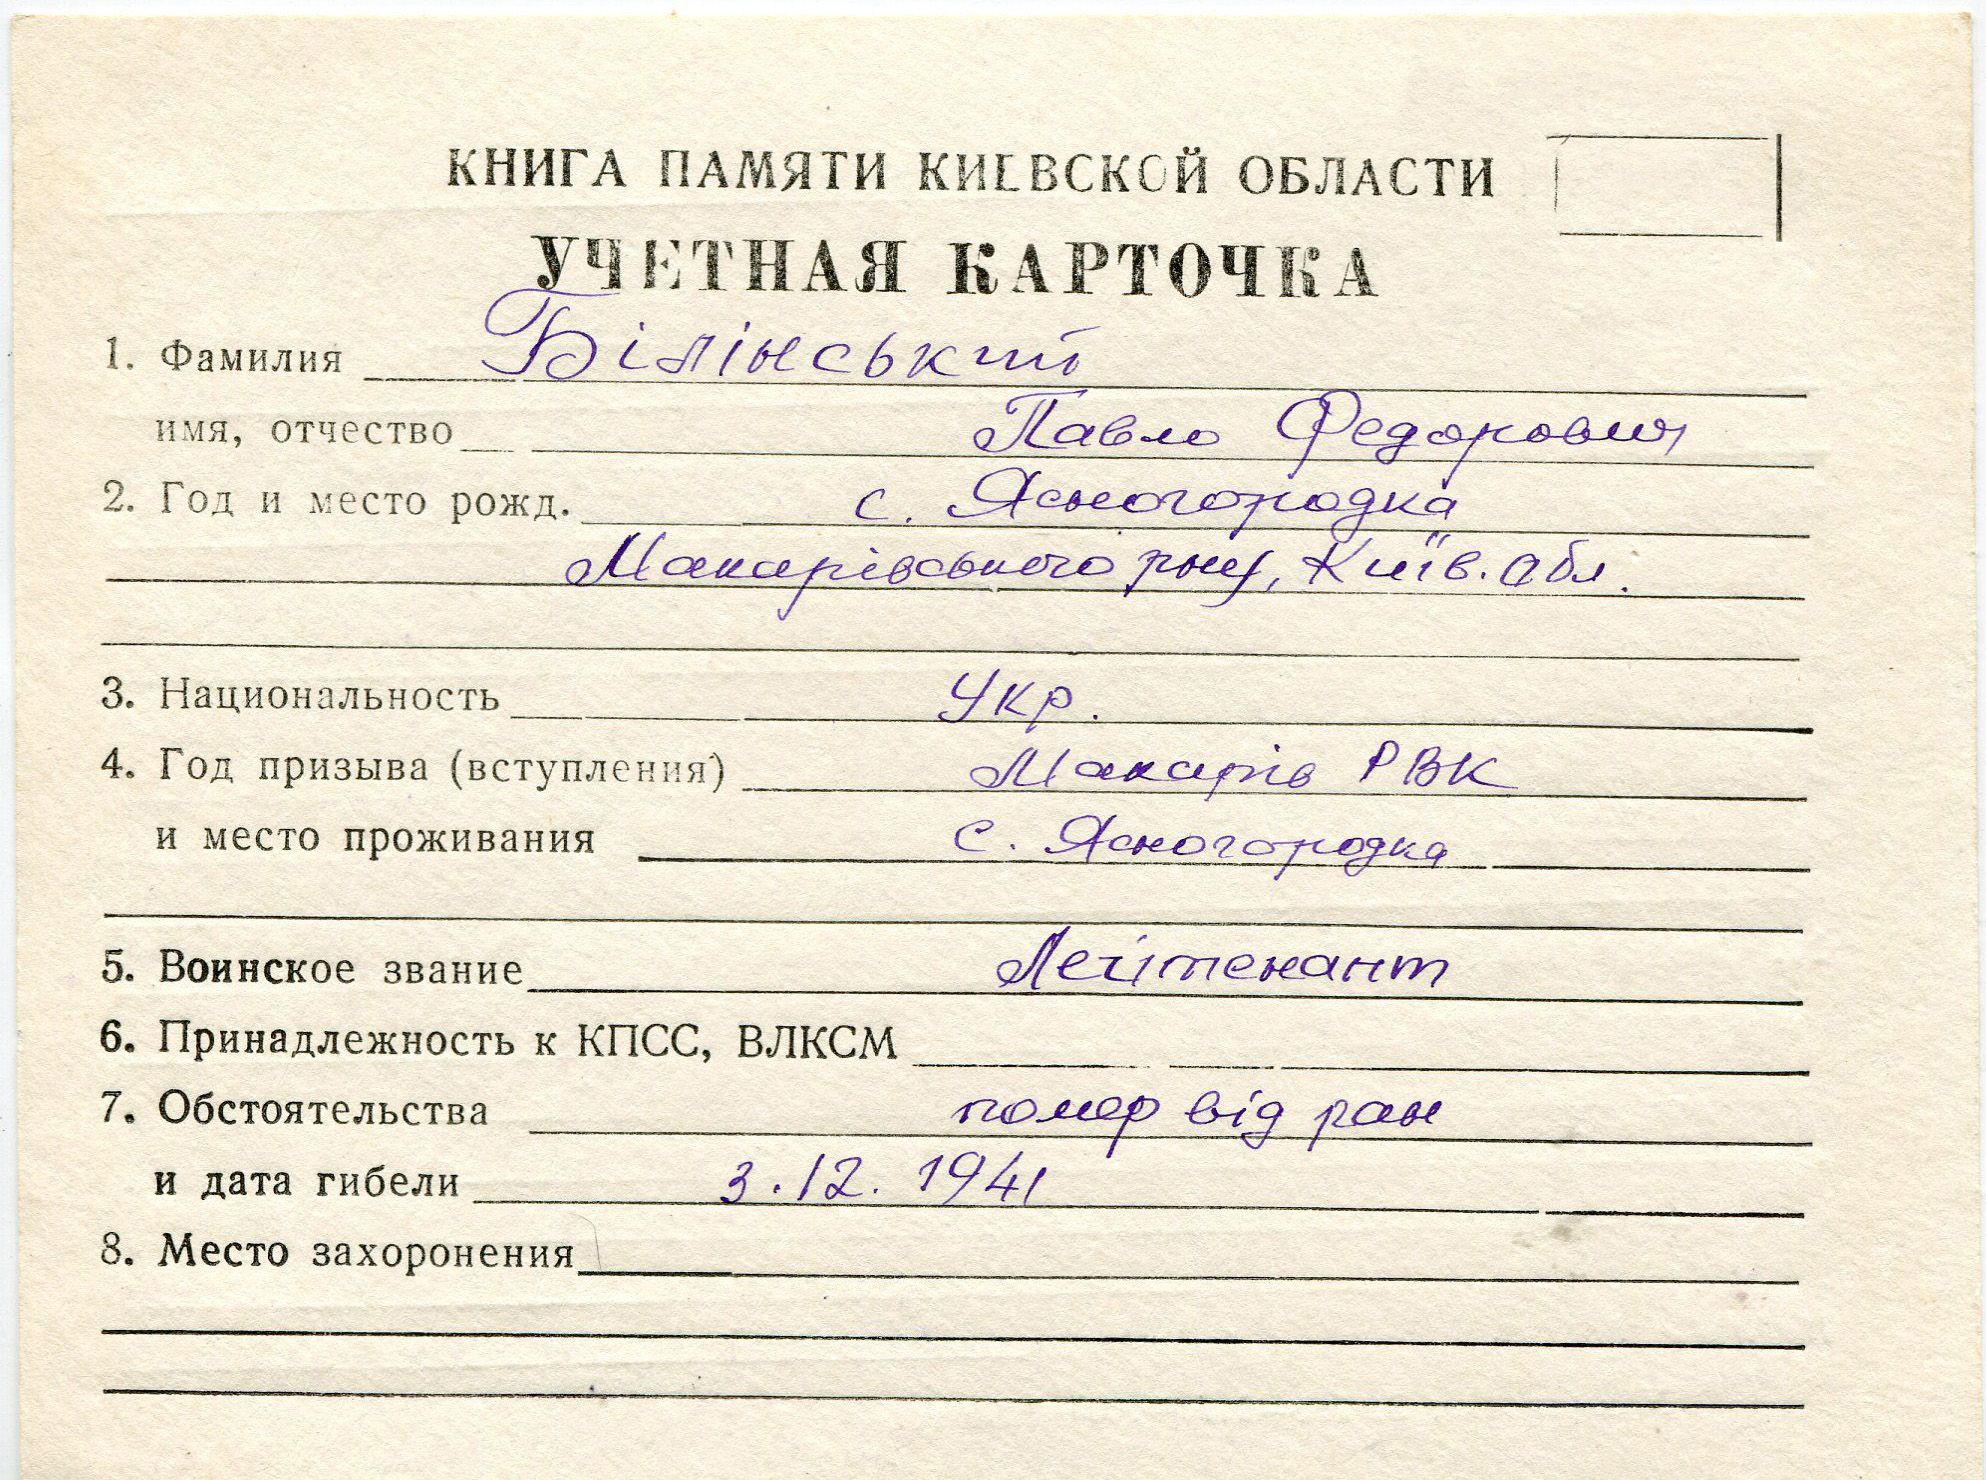 КНИГА ПАМЯТИ КИЕВСКОЙ ОБЛАСТИ
УЧЕТНАЯ КАРТОЧКА
1. Фамилия Білінський
имя, отчество Павло Федорович
2. Год и место рожд. с. Ясногородка
Макарівського р-ну, Київ. обл.
3. Национальность Укр.
4. Год призыва (вступления) Макарів РВК
и место проживания с. Ясногородка
5. Воинское звание Лейтенант
6. Принадлежность к КПСС, ВЛКСМ
7. Обстоятельства помер від ран
и дата гибели 3.12.1941
8. Место захоронения